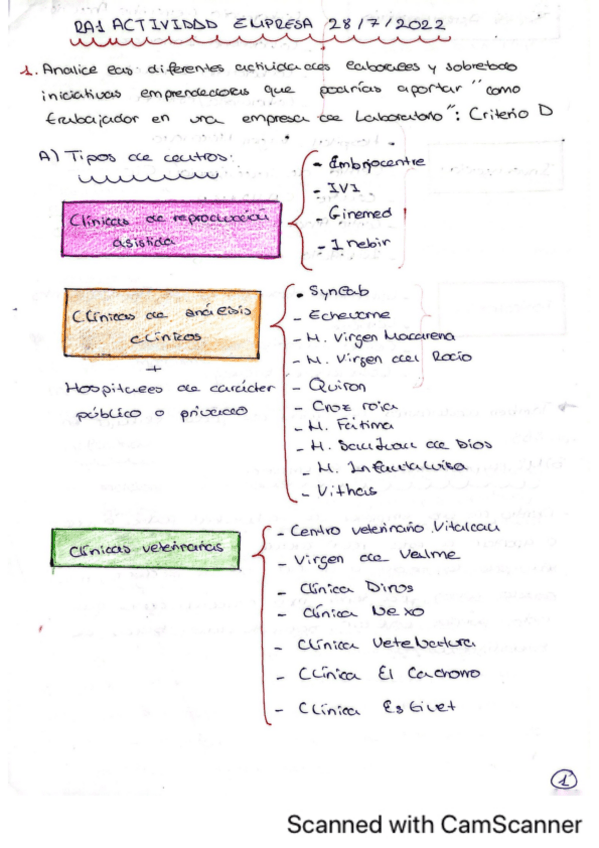 RA1 ACTIVIDAD EMPRESA 28/7/2022
1. Analice las diferentes actividades laborales y sobretodo
iniciativas emprendedoras que podrías aportar "como
trabajador en una empresa de Laboratorio": Criterio D
A) Tipos de centros:
Clínicas de reproducción
asistida
- Embryocentre
- IVI
- Ginemed
- Inebir
Clínicas de análisis
clínicos
+
Hospitales de carácter
público o privado
- Synlab
- Echevarne
- H. Virgen Macarena
- H. Virgen del Rocío
- Quiron
- Cruz roja
- H. Fátima
- H. San Juan de Dios
- H. Infanta Luisa
- Vithas
Clínicas veterinarias
- Centro veterinario Vitalcan
- Virgen de Valme
- Clínica Diros
- Clínica Nexo
- Clínica
- Clínica El Cachorro
- Clínica
1
Scanned with CamScanner